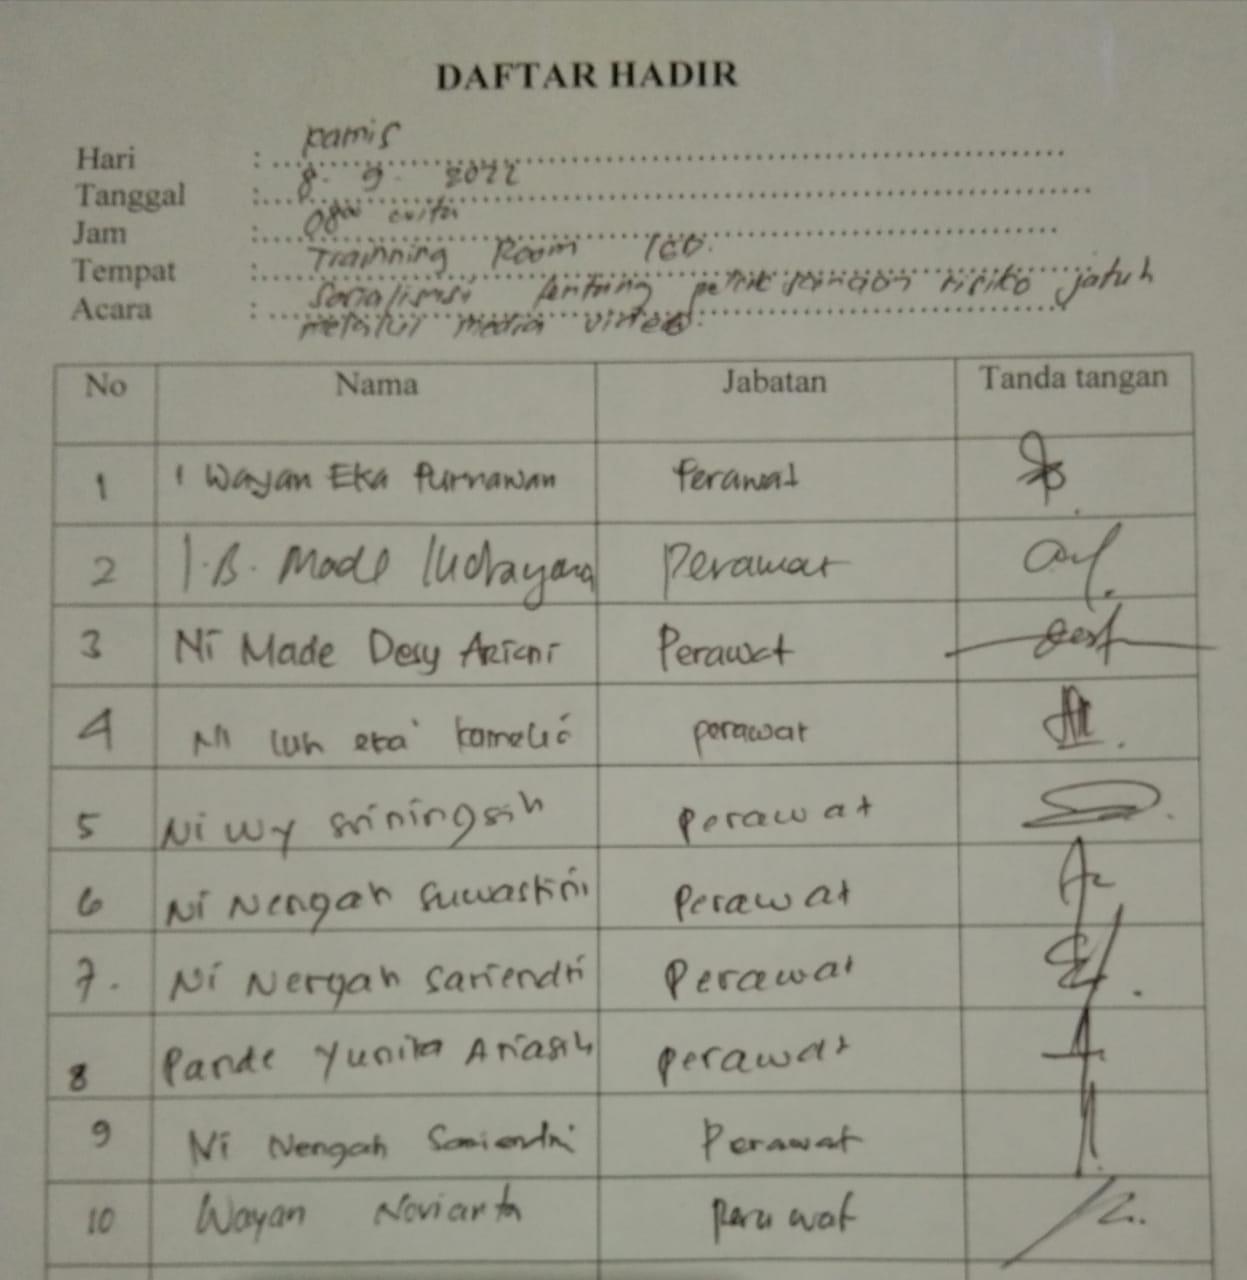 DAFTAR HADIR
Hari : Kamis
Tanggal : 8 - 9 - 2022
Jam : 08⁰⁰ wita
Tempat : Trainning Room ICU.
Acara : Sosialisasi tentang risiko jatuh
melalui media video.
No Nama Jabatan Tanda tangan
1 I Wayan Eka Purnawan Perawat
2 I.B. Made Perawat
3 Ni Made Desy Ariani Perawat
4 Ni luh eka kamelia perawat
5 Ni Wy Sriningsih Perawat
6 Ni Nengah Suwastini Perawat
7. Ni Nengah Sariendri Perawat
8 Pande Yunita Ariasih Perawat
9 Ni Nengah Sariendri Perawat
10 Wayan Novianta Perawat